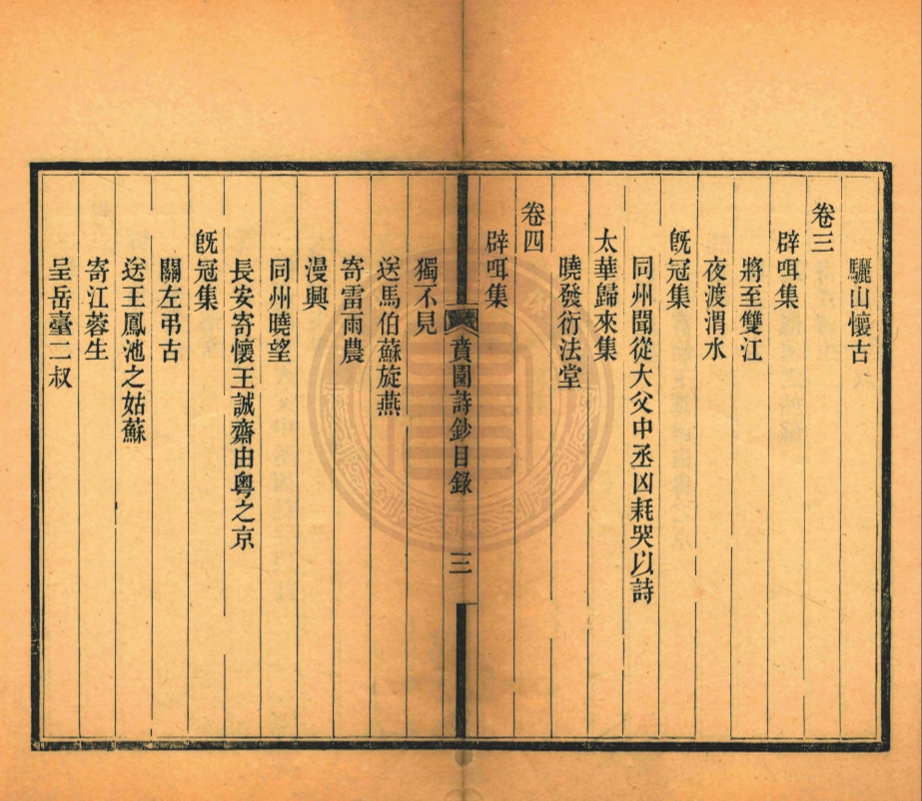 驪山懷古
卷三
辟咡集
將至雙江
夜渡渭水
旣冠集
同州聞從大父中丞凶耗哭以詩
太華歸來集
曉發衍法堂
卷四
辟咡集
賁園詩鈔目錄
三
獨不見
送馬伯蘇旋燕
寄雷雨農
漫興
同州曉望
長安寄懷王誠齋由粵之京
旣冠集
關左弔古
送王鳳池之姑蘇
寄江蓉生
呈岳臺二叔